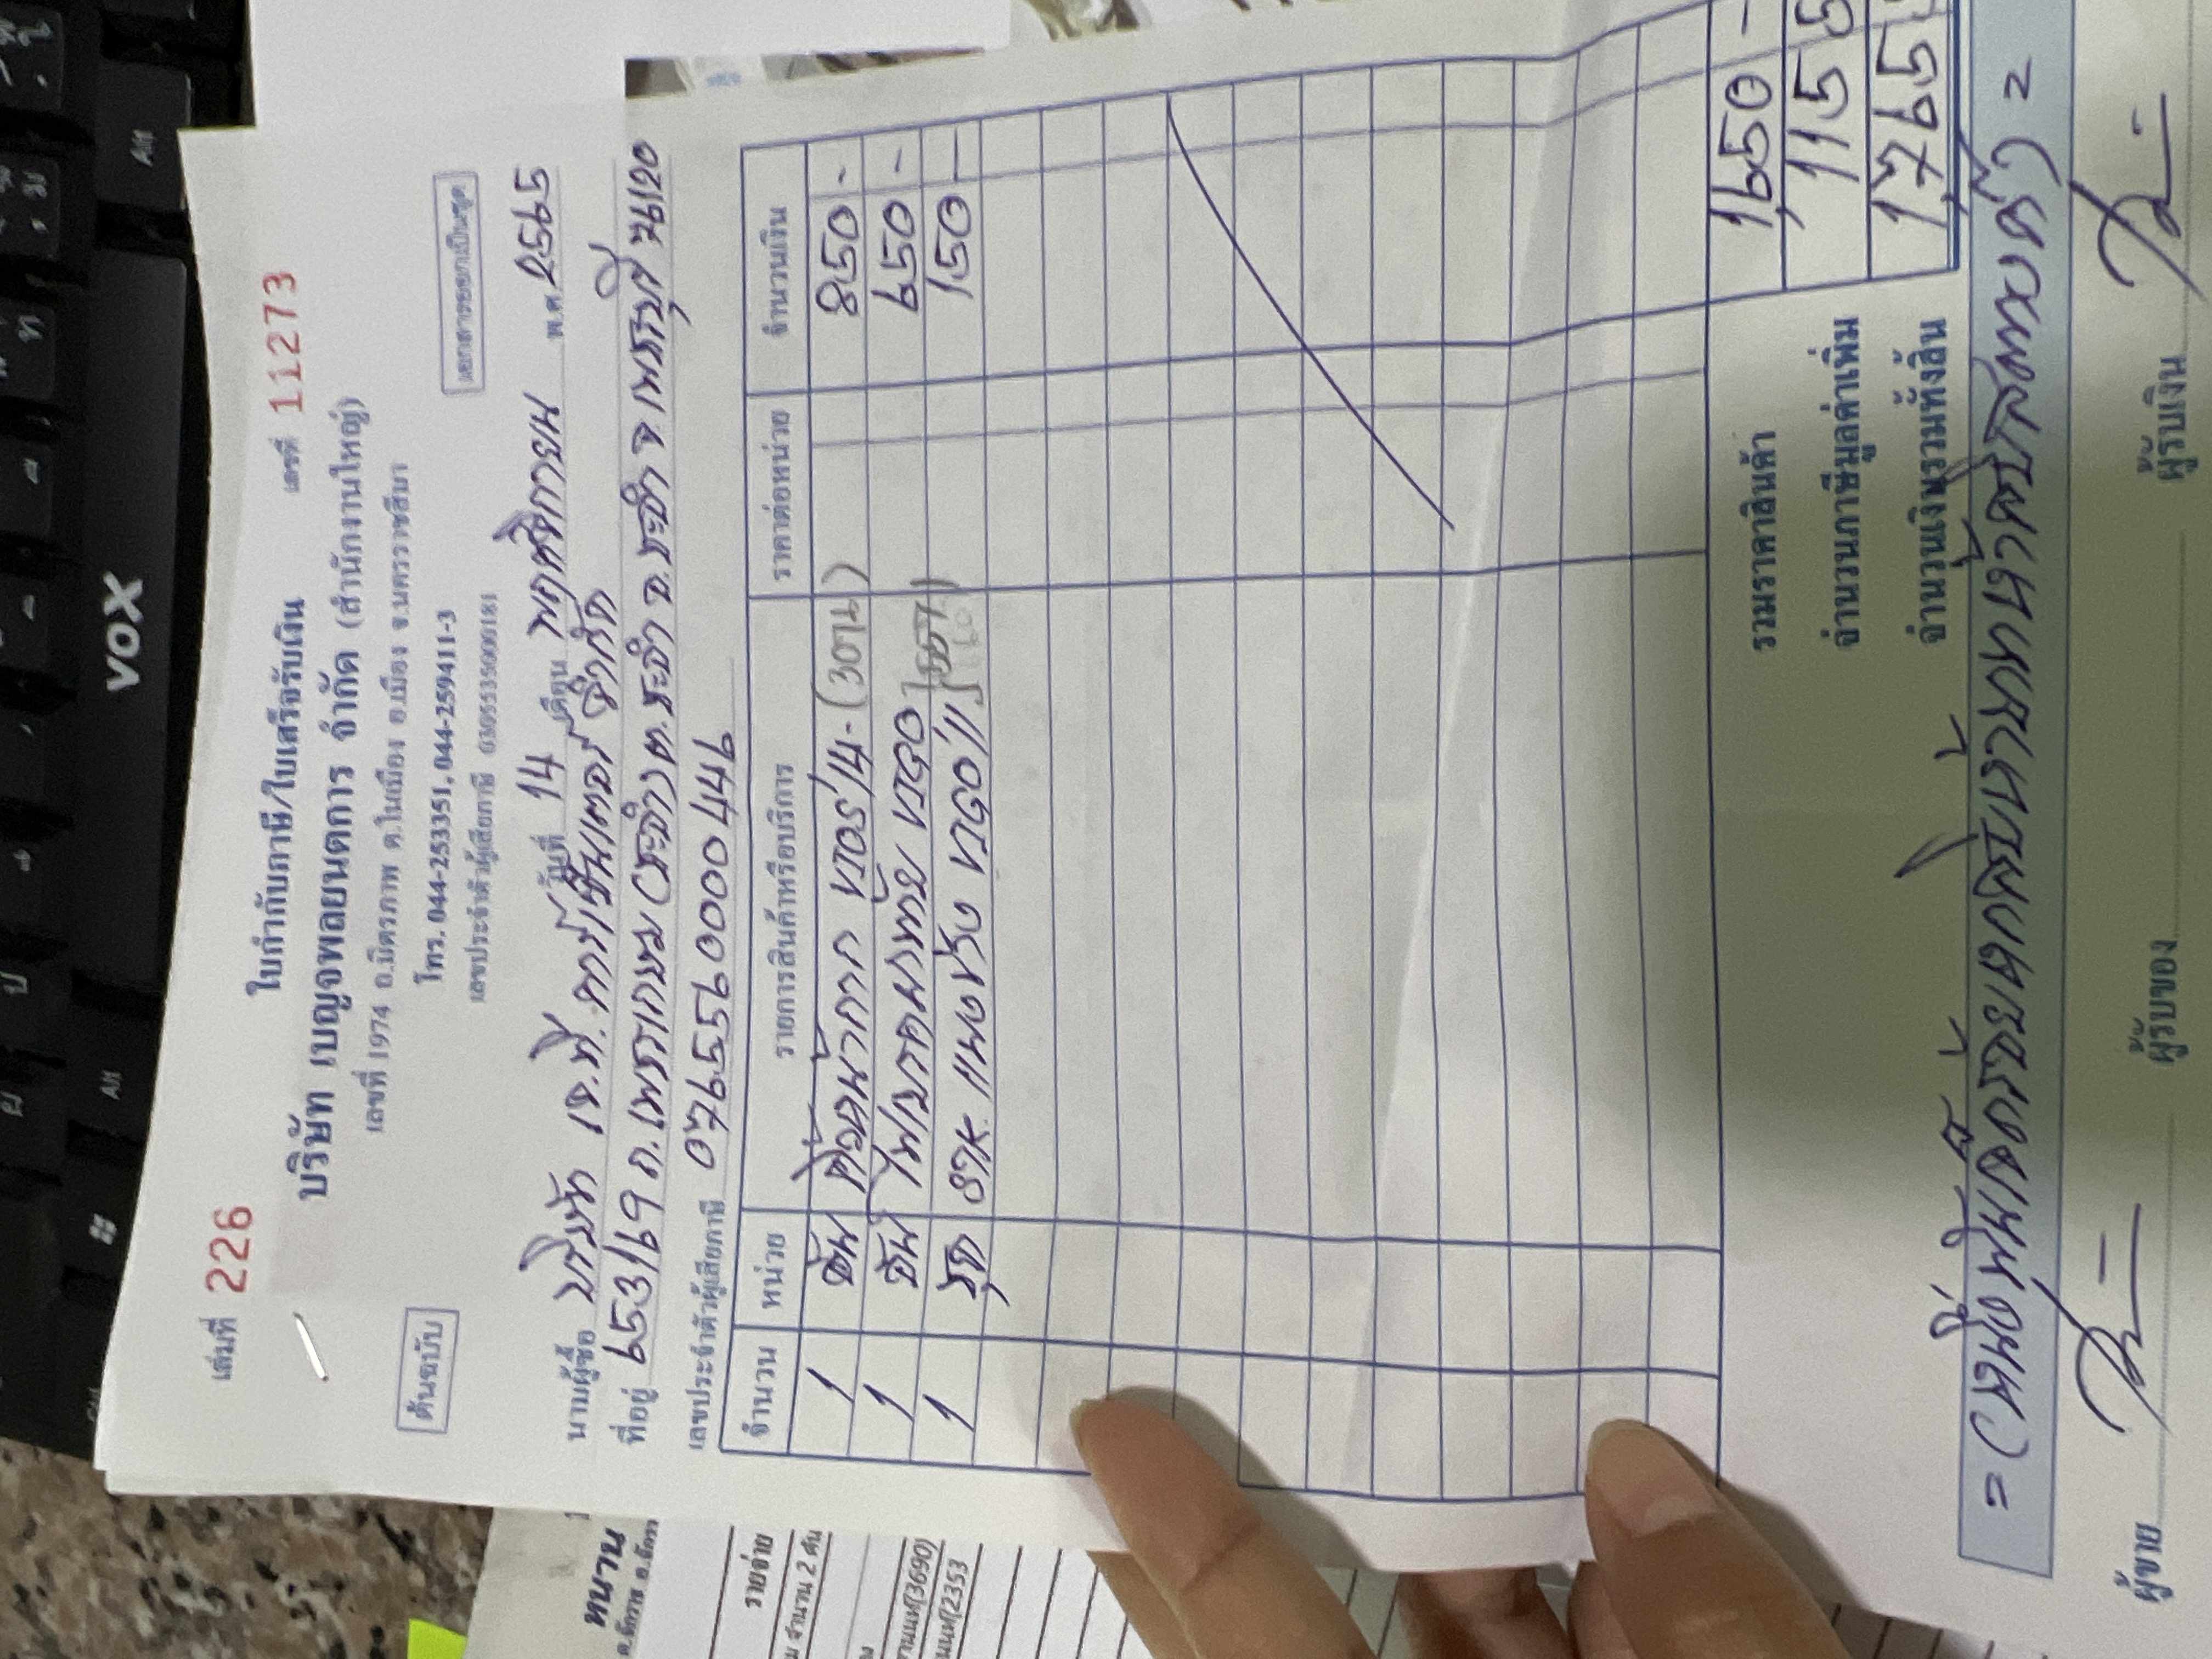 เล่มที่ 226
เลขที่ 11273
ใบกำกับภาษี/ใบเสร็จรับเงิน
บริษัท เบญจพลยนตการ จำกัด (สำนักงานใหญ่)
เลขที่ 1974 ถ.มิตรภาพ ต.ในเมือง อ.เมือง จ.นครราชสีมา
โทร. 044-253351, 044-259411-3
ต้นฉบับ
เลขประจำตัวผู้เสียภาษี
เอกสารออกเป็นชุด
วันที่ 14 เดือน พฤศจิกายน พ.ศ. 2565
นามผู้ซื้อ บริษัท เจ.ที. คาร์เซ็นเตอร์ จำกัด
ที่อยู่ 653/69 ถ.เพชรเกษม(ชะอำ) ต.ชะอำ อ.ชะอำ จ.เพชรบุรี 76120
เลขประจำตัวผู้เสียภาษี 0765560000449
จำนวน หน่วย รายการสินค้าหรือบริการ ราคาต่อหน่วย จำนวนเงิน
1 อัน VIOS,14- 850 -
1 อัน VIGO 650 -
1 ชุด VIGO,11 150 -
รวมราคาสินค้า 1,650 -
จำนวนภาษีมูลค่าเพิ่ม 115 5
จำนวนเงินรวมทั้งสิ้น 1,765 5
= (หนึ่งพันเจ็ดร้อยหกสิบห้าบาทห้าสิบสตางค์) =
ผู้ขาย
ผู้รับของ
ผู้รับเงิน
VOX
Alt
Alt
ทนาน
รายจ่าย
จำนวน 2 คัน
(3690)
(2353